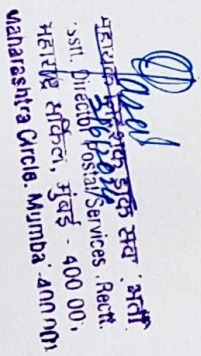 सहायक निदेशक डाक सेवा : भर्ती
Asstt. Director Postal Services, Rectt.
महाराष्ट्र सर्किल, मुंबई - 400 001
Maharashtra Circle, Mumbai-400 001